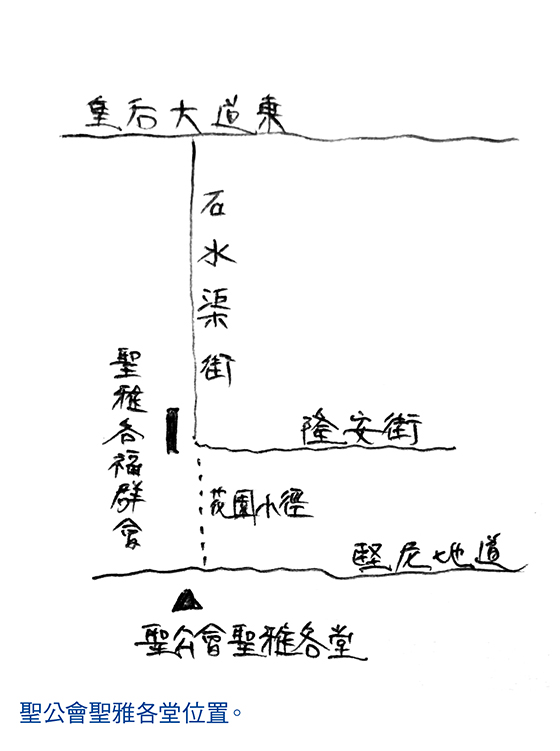 皇后大道東
石水渠街
聖雅各福群會
隆安街
花園小徑
堅尼地道
聖公會聖雅各堂
聖公會聖雅各堂位置。